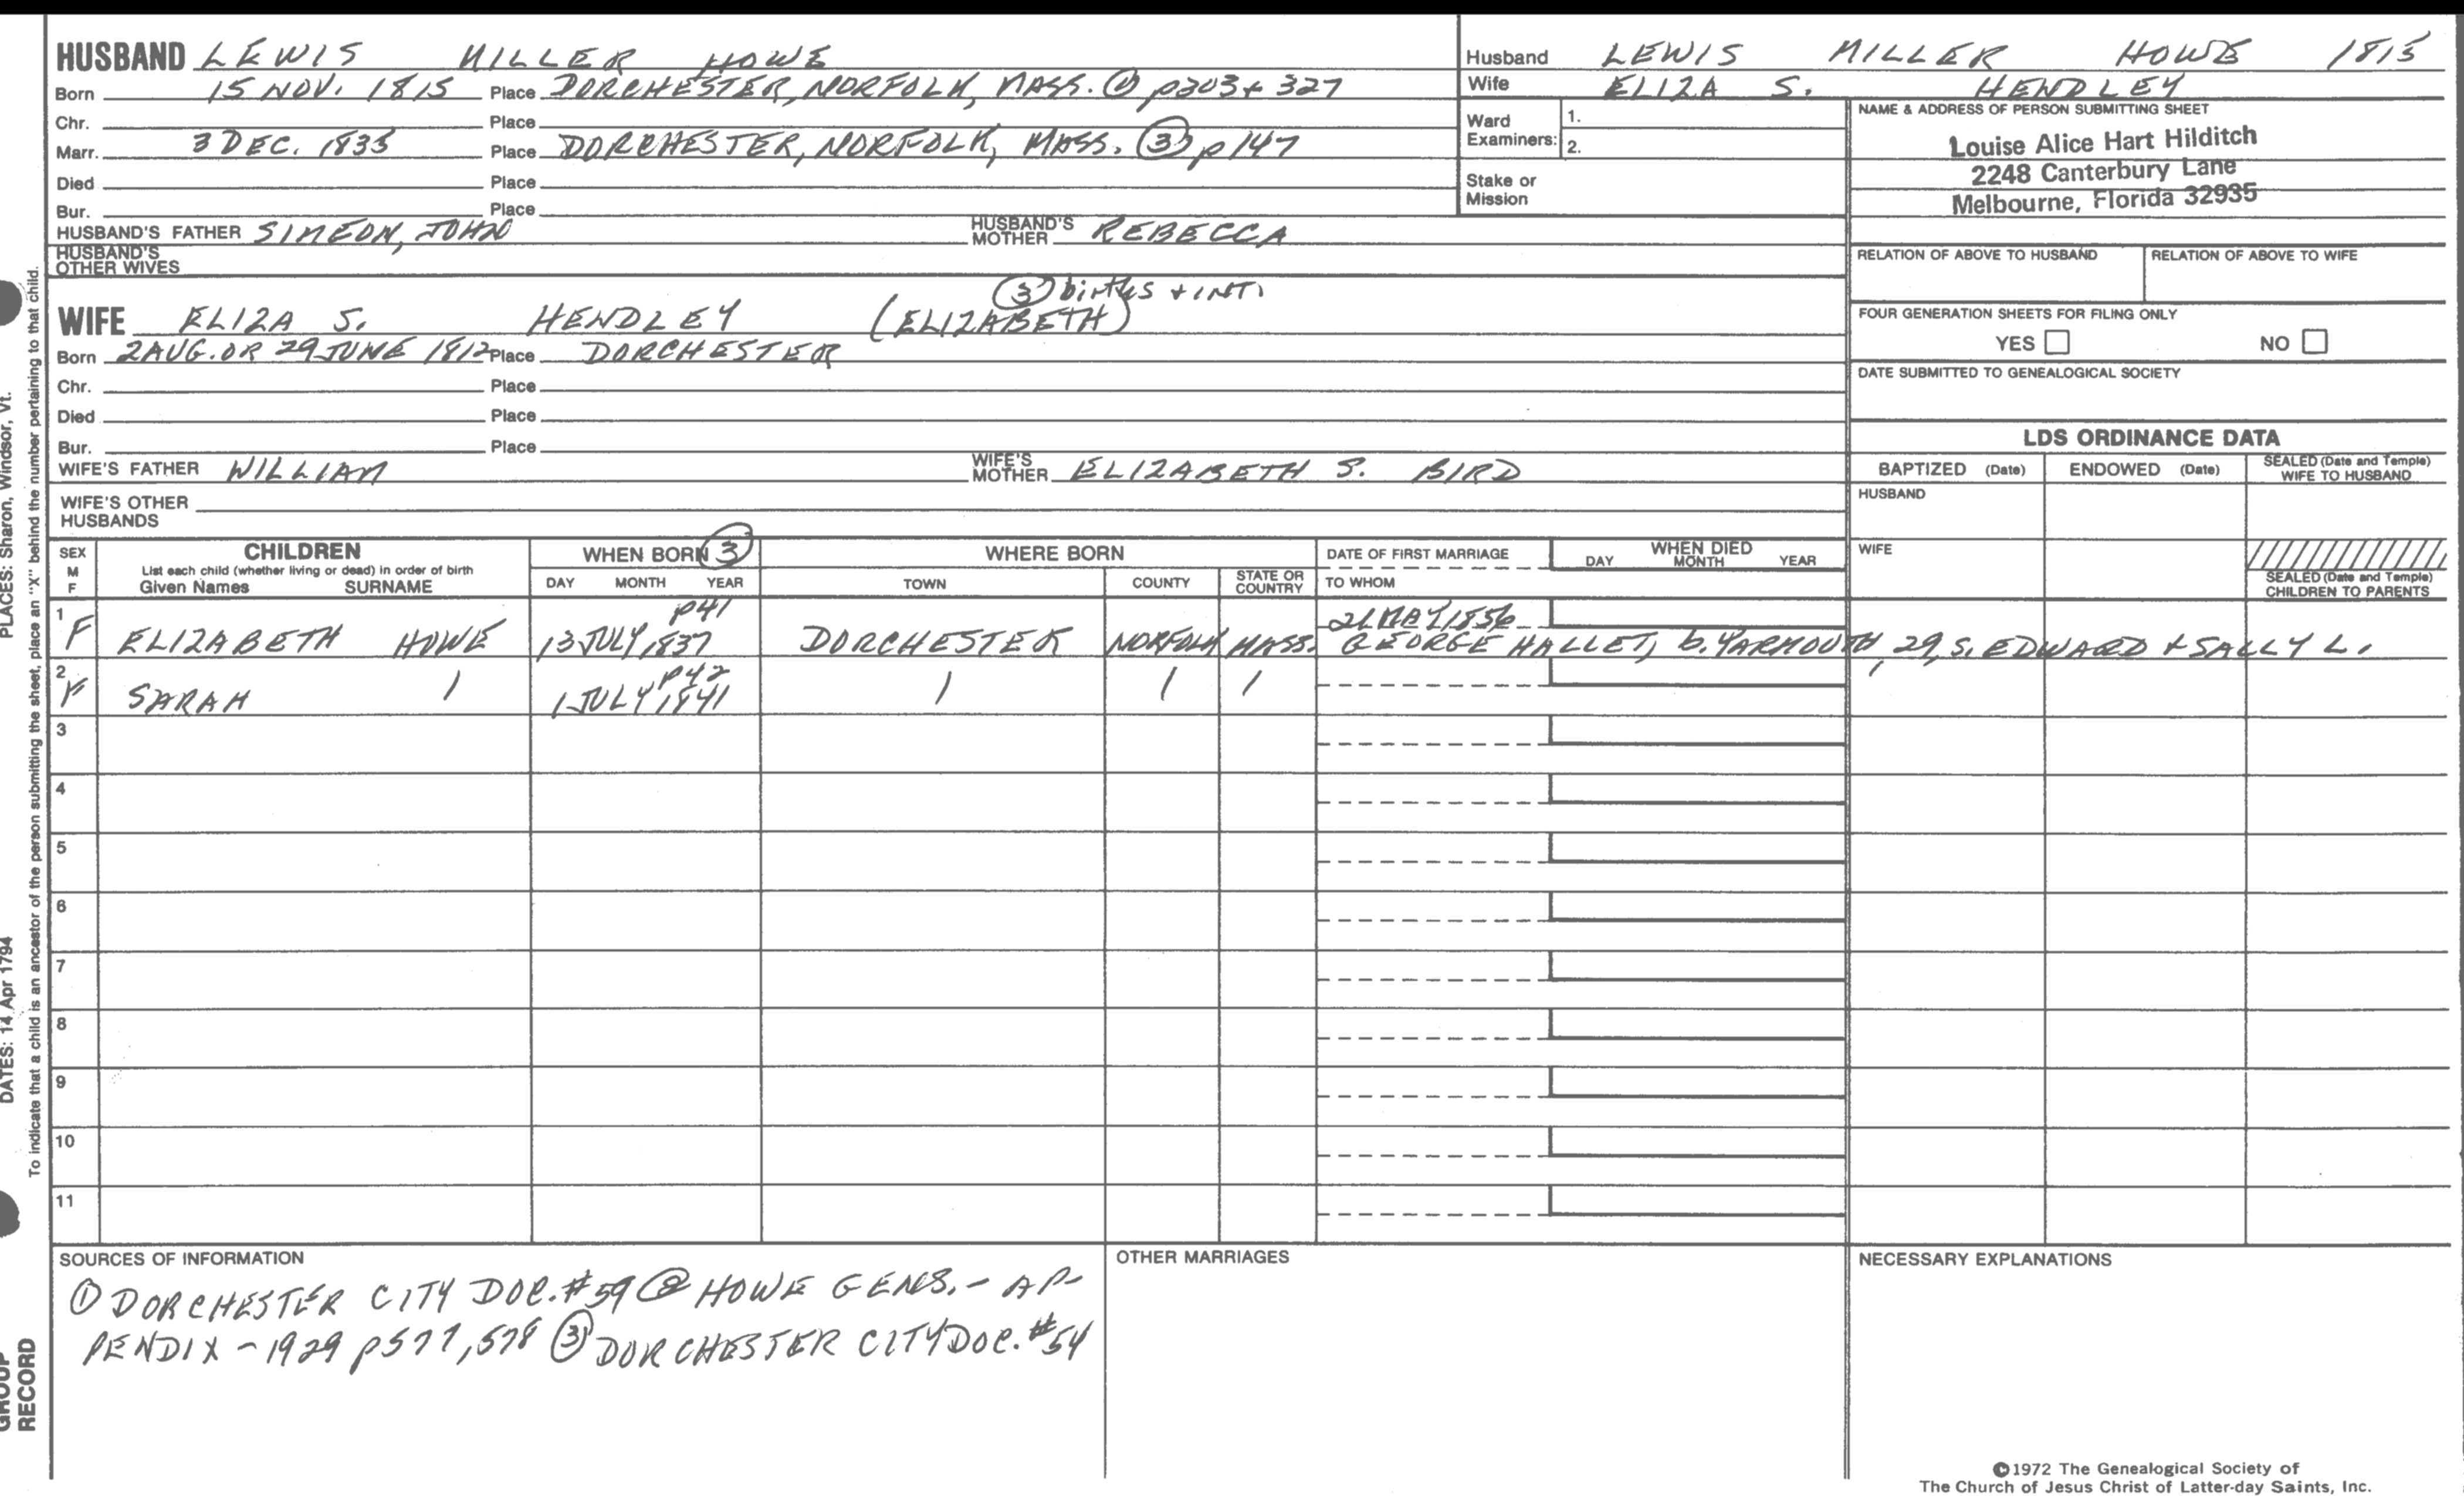 HUSBAND LEWIS MILLER HOWE
Born 15 NOV. 1815 Place DORCHESTER, NORFOLK, MASS. ① p303 + 327
Chr. Place
Marr. 3 DEC. 1835 Place DORCHESTER, NORFOLK, MASS. ③ p147
Died Place
Bur. Place
HUSBAND'S FATHER SIMEON, JOHN HUSBAND'S MOTHER REBECCA
HUSBAND'S OTHER WIVES
③ births + INT.
WIFE ELIZA S. HENDLEY (ELIZABETH)
Born 2 AUG. OR 29 JUNE 1812 Place DORCHESTER
Chr. Place
Died Place
Bur. Place
WIFE'S FATHER WILLIAM WIFE'S MOTHER ELIZABETH S. BIRD
WIFE'S OTHER HUSBANDS
Husband LEWIS MILLER HOWE 1815
Wife ELIZA S. HENDLEY
Ward Examiners: 1.
2.
Stake or Mission
NAME & ADDRESS OF PERSON SUBMITTING SHEET
Louise Alice Hart Hilditch
2248 Canterbury Lane
Melbourne, Florida 32935
RELATION OF ABOVE TO HUSBAND RELATION OF ABOVE TO WIFE
FOUR GENERATION SHEETS FOR FILING ONLY
YES NO
DATE SUBMITTED TO GENEALOGICAL SOCIETY
LDS ORDINANCE DATA
BAPTIZED (Date) ENDOWED (Date) SEALED (Date and Temple) WIFE TO HUSBAND
HUSBAND
WIFE
SEALED (Date and Temple) CHILDREN TO PARENTS
SEX M F CHILDREN WHEN BORN ③ WHERE BORN DATE OF FIRST MARRIAGE WHEN DIED
List each child (whether living or dead) in order of birth
Given Names SURNAME DAY MONTH YEAR TOWN COUNTY STATE OR COUNTRY TO WHOM DAY MONTH YEAR
p41 21 MAY 1856
1 F ELIZABETH HOWE 13 JULY, 1837 DORCHESTER NORFOLK MASS. GEORGE HALLET, b. YARMOUTH, 29, S. EDWARD + SALLY L.
p42
2 F SARAH / 1 JULY, 1841 / / /
3
4
5
6
7
8
9
10
11
SOURCES OF INFORMATION
① DORCHESTER CITY DOC. #59 ② HOWE GENS. - AP-
PENDIX - 1929 p577, 578 ③ DORCHESTER CITY DOC. #54
OTHER MARRIAGES
NECESSARY EXPLANATIONS
©1972 The Genealogical Society of
The Church of Jesus Christ of Latter-day Saints, Inc.
To indicate that a child is an ancestor of the person submitting the sheet, place an "X" behind the number pertaining to that child.
PLACES: Sharon, Windsor, Vt.
DATES: 14 Apr 1794
GROUP
RECORD